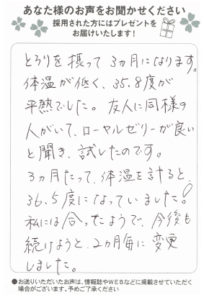 あなた様のお声をお聞かせください
採用された方にはプレゼントを
お届けいたします！
とろりを摂って3ヵ月になります。
体温が低く、35.8度が
平熱でした。友人に同様の
人がいて、ローヤルゼリーが良い
と聞き、試したのです。
3ヵ月たって、体温を計ると、
36.5度になっていました！
私には合ってたようで、今後も
続けようと、2ヵ月毎に変更
しました。
●お送りいただいたお声は、情報誌やWEBなどに掲載させていただく
場合がございます。予めご了承ください